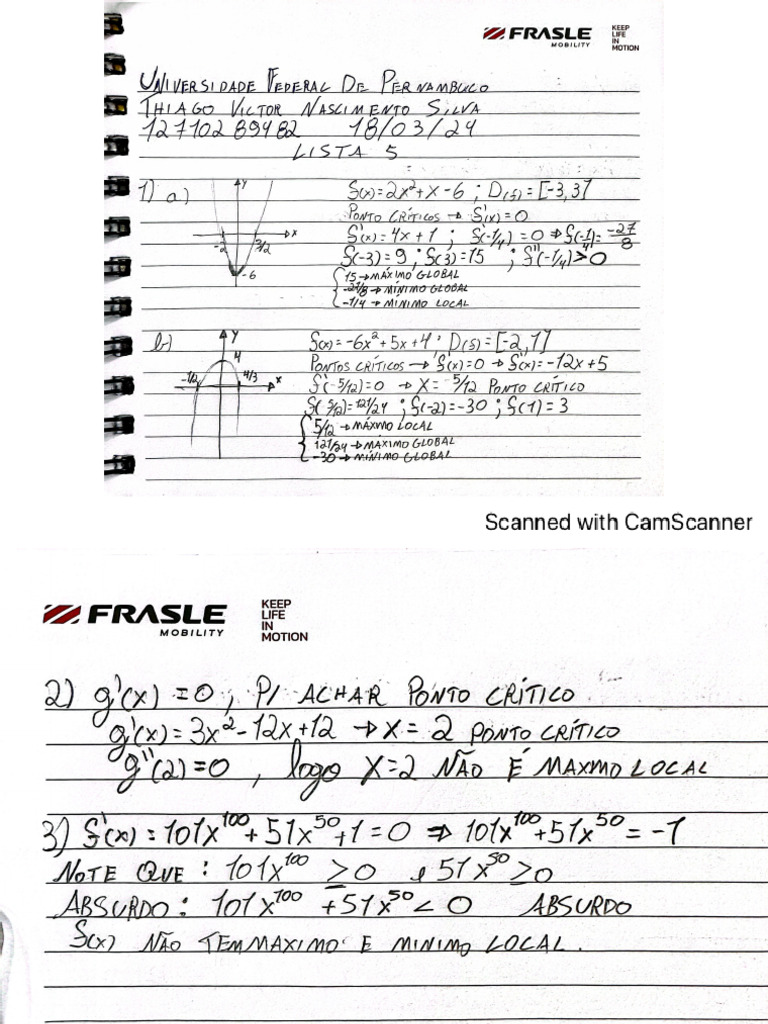 FRASLE
MOBILITY
KEEP
LIFE
IN
MOTION
UNIVERSIDADE FEDERAL DE PERNAMBUCO
THIAGO VICTOR NASCIMENTO SILVA
12710289482 18/03/24
LISTA 5
1) a) y f(x) = 2x²+x-6 ; D(f) = [-3,3]
PONTO CRÍTICOS → f'(x)=0
-2 3/2 x f'(x) = 4x+1 ; f'(-1/4) = 0 ⇒ f(-1/4) = -27/8
-6 f(-3) = 9 ; f(3) = 15 ; f''(-1/4) > 0
15 → MÁXIMO GLOBAL
-27/8 → MÍNIMO GLOBAL
-1/4 → MINIMO LOCAL
b) y f(x) = -6x²+5x+4 ; D(f) = [-2,1]
4 PONTOS CRÍTICOS → f'(x)=0 → f'(x) = -12x+5
-1/2 4/3 x f'(5/12) = 0 → X = 5/12 PONTO CRÍTICO
f(5/12) = 121/24 ; f(-2) = -30 ; f(1) = 3
5/12 → MÁXIMO LOCAL
121/24 → MAXIMO GLOBAL
-30 → MÍNIMO GLOBAL
Scanned with CamScanner
FRASLE
MOBILITY
KEEP
LIFE
IN
MOTION
2) g'(x) = 0 , P/ ACHAR PONTO CRÍTICO
g'(x) = 3x²-12x+12 → X = 2 PONTO CRÍTICO
g''(2) = 0 , logo X=2 NÃO É MAXMO LOCAL
3) f'(x) = 101x¹⁰⁰+51x⁵⁰+1 = 0 ⇒ 101x¹⁰⁰+51x⁵⁰ = -1
NOTE QUE : 101x¹⁰⁰ ≥ 0 e 51x⁵⁰ ≥ 0
ABSURDO : 101x¹⁰⁰ + 51x⁵⁰ < 0 ABSURDO
f(x) NÃO TEM MAXIMO E MINIMO LOCAL.